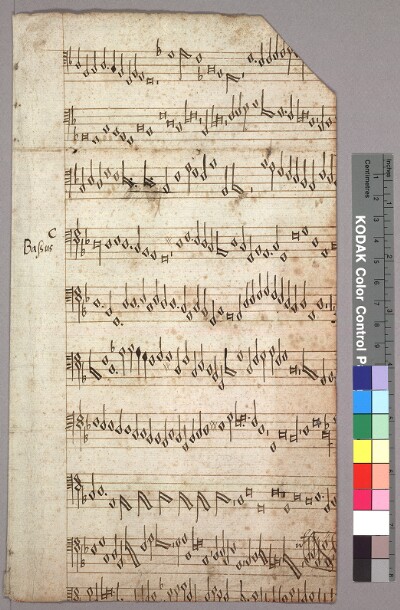 C
Bassus
Inches
Centimetres
KODAK Color Control P